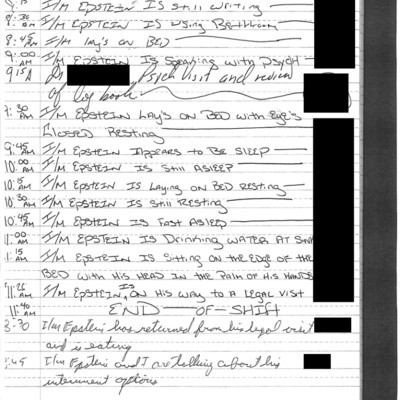 8:15 I/M EPSTEIN IS Still writing
8:30 AM I/M EPSTEIN IS Using Bathroom
8:45 AM I/M lay's on BED
9:00 AM I/M EPSTEIN IS Speaking with PSYCH
9:15A Dr Psych Visit and review
of log book
9:30 AM I/M EPSTEIN LAY'S ON BED with EYE'S
CLOSED RESTING
9:45 AM I/M EPSTEIN APPEARS TO BE SLEEP
10:00 AM I/M EPSTEIN IS Still ASlEEP
10:15 AM I/M EPSTEIN IS LAYING ON BED RESTING
10:30 AM I/M EPSTEIN IS Still RESTING
10:45 AM I/M EPSTEIN IS FAST ASlEEP
11:00 AM I/M EPSTEIN IS DRINKING WATER AT SINK
11:15 AM I/M EPSTEIN IS Sitting ON THE EDGE OF THE
BED WITH HIS HEAD IN THE PALM OF HIS HANDS
11:26 AM I/M EPSTEIN IS ON HIS WAY TO A LEGAL VISIT
11:40 AM END OF-SHIFT
3:30 I/m Epstein has returned from his legal visit
and is eating
:45 I/m Epstein and I are talking about his
internment options